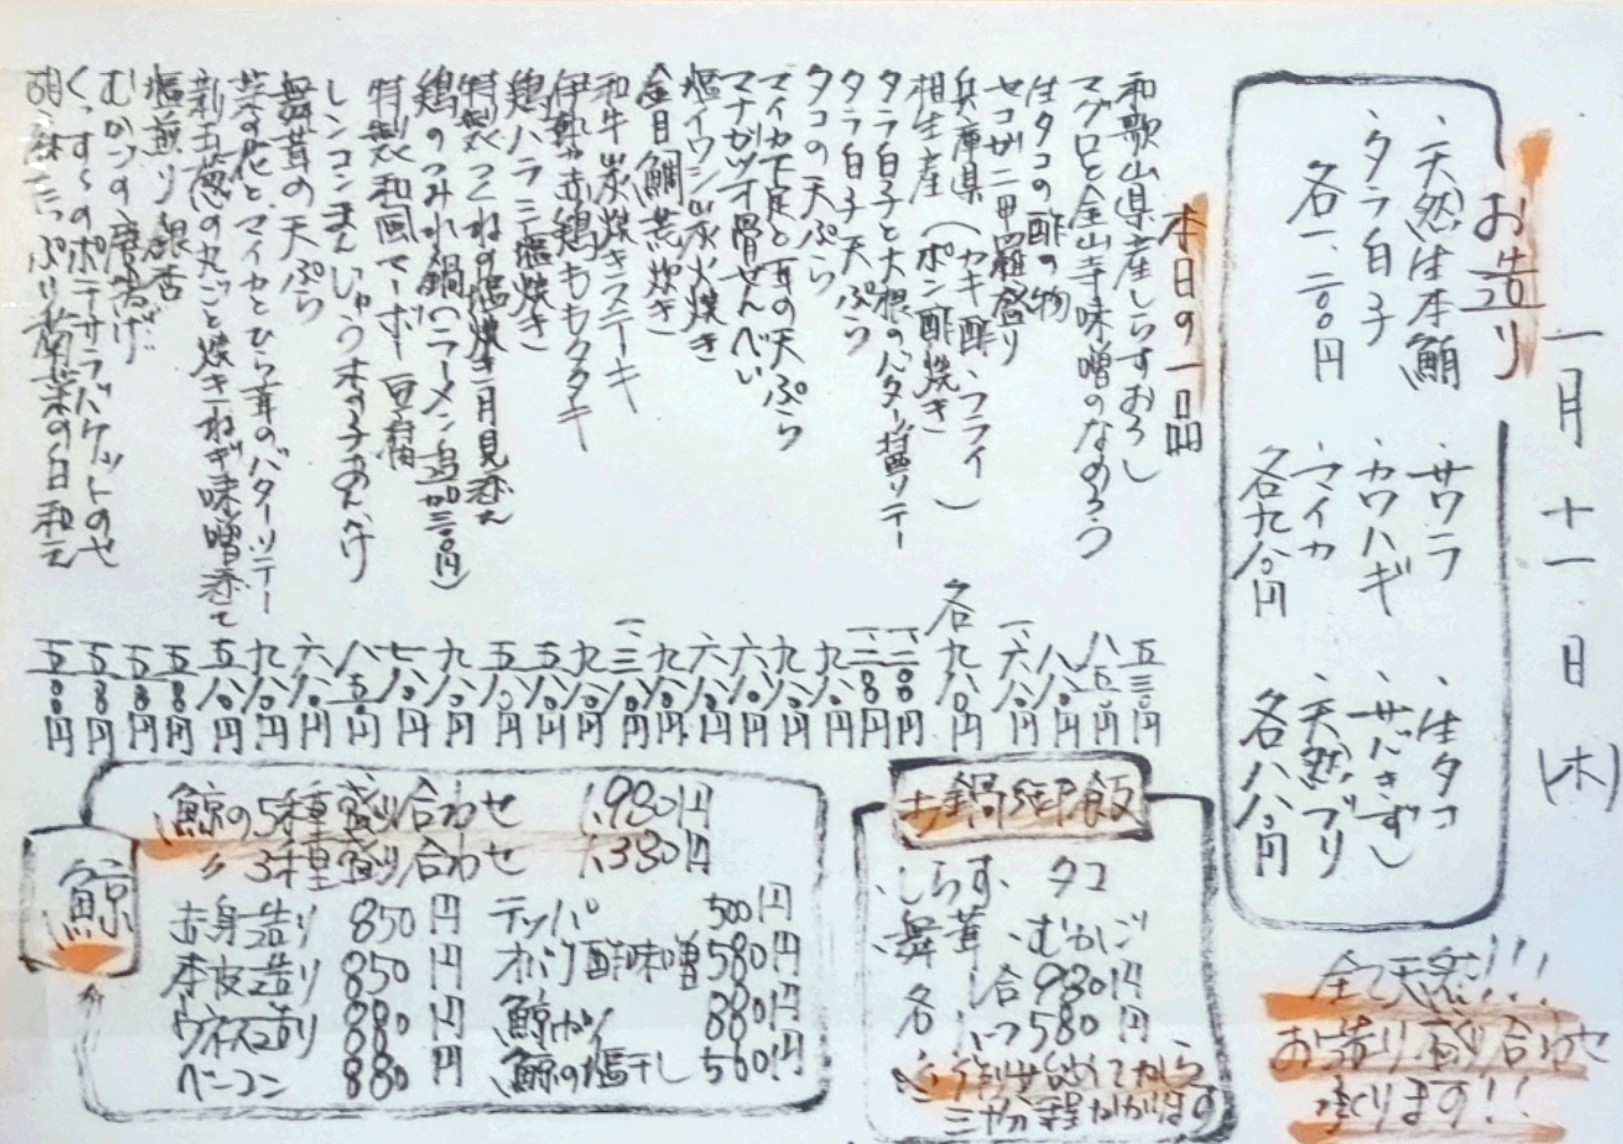 一月十一日(木)
お造り
・天然生本鮪
・タラ白子
各一、二〇〇円
・サワラ
・カワハギ
・マイカ
各九八〇円
・生タコ
・天然ブリ
各八八〇円
全て天然!!!
お造り盛り合わせ
承ります!!
本日の一品
和歌山県産しらすおろし 五三〇円
マグロと金山寺味噌のなめろう 八五〇円
生タコの酢の物 八八〇円
セコガニ甲羅盛り 一、六八〇円
兵庫県(カキ酢、フライ)
相生産(ポン酢焼き 各九八〇円
タラ白子と大根のバター醤ソテー 一、二〇〇円
タラ白子天ぷら
タコの天ぷら 九八〇円
マイカ下足と耳の天ぷら 九八〇円
マナガツオ骨せんべい 六八〇円
塩イワシ炭火焼き 六八〇円
金目鯛荒炊き 九八〇円
和牛炭焼きステーキ
伊勢赤鶏ももタタキ 九八〇円
鶏ハラミ塩焼き 五八〇円
特製つくねの塩焼き月見添え 五八〇円
鶏のつみれ鍋(ラーメン追加三〇〇円) 九八〇円
特製和風マーボー豆腐 七八〇円
レンコンまんじゅうあんかけ 八五〇円
舞茸の天ぷら 六八〇円
菜の花とマイカとひら茸のバターソテー 九八〇円
新玉葱の丸ごと焼きねぎ味噌添え 五八〇円
塩煎り銀杏
むかごの唐揚げ
くっすーのポテサラバケットのせ
胡麻たっぷり菊菜の白和え
お鍋御飯
、しらす、タコ
、舞茸、むかご
各 一合 980円
ハーフ 580円
鯨
鯨の5種盛り合わせ 1,980円
〃 3種盛り合わせ 1,380円
お身造り 850円
本皮造り 850円
ウネス造り 880円
ベーコン 880円
テッパ 500円
オバケ酢味噌 580円
鯨カツ 880円
鯨の塩干し 580円